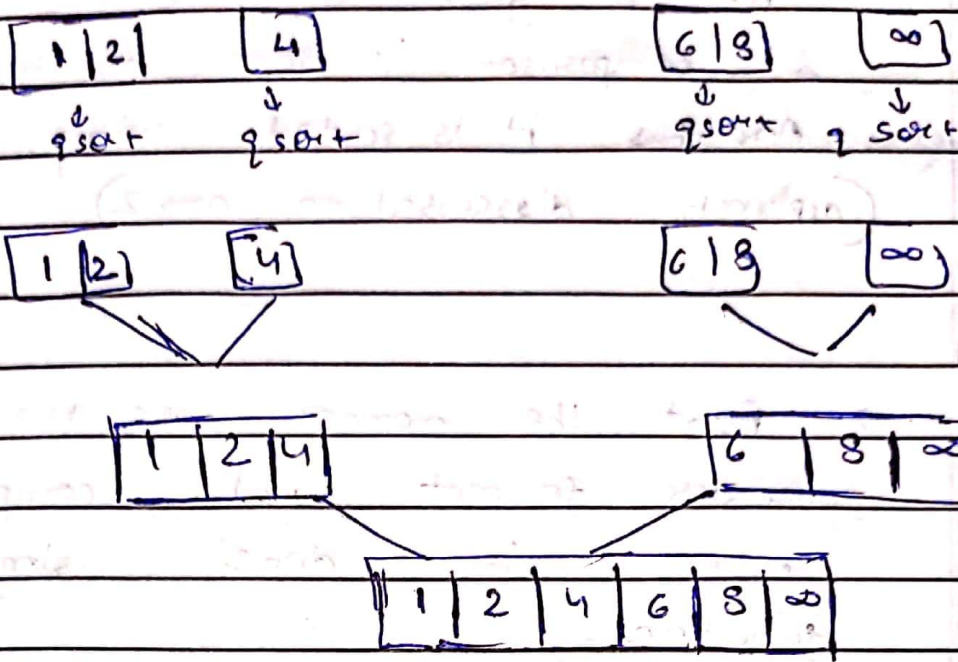 1 | 2 4 6 | 8 ∞
qsort qsort qsort q sort
1 2 4 6 | 8 ∞
1 2 4 6 8 ∞
1 2 4 6 8 ∞